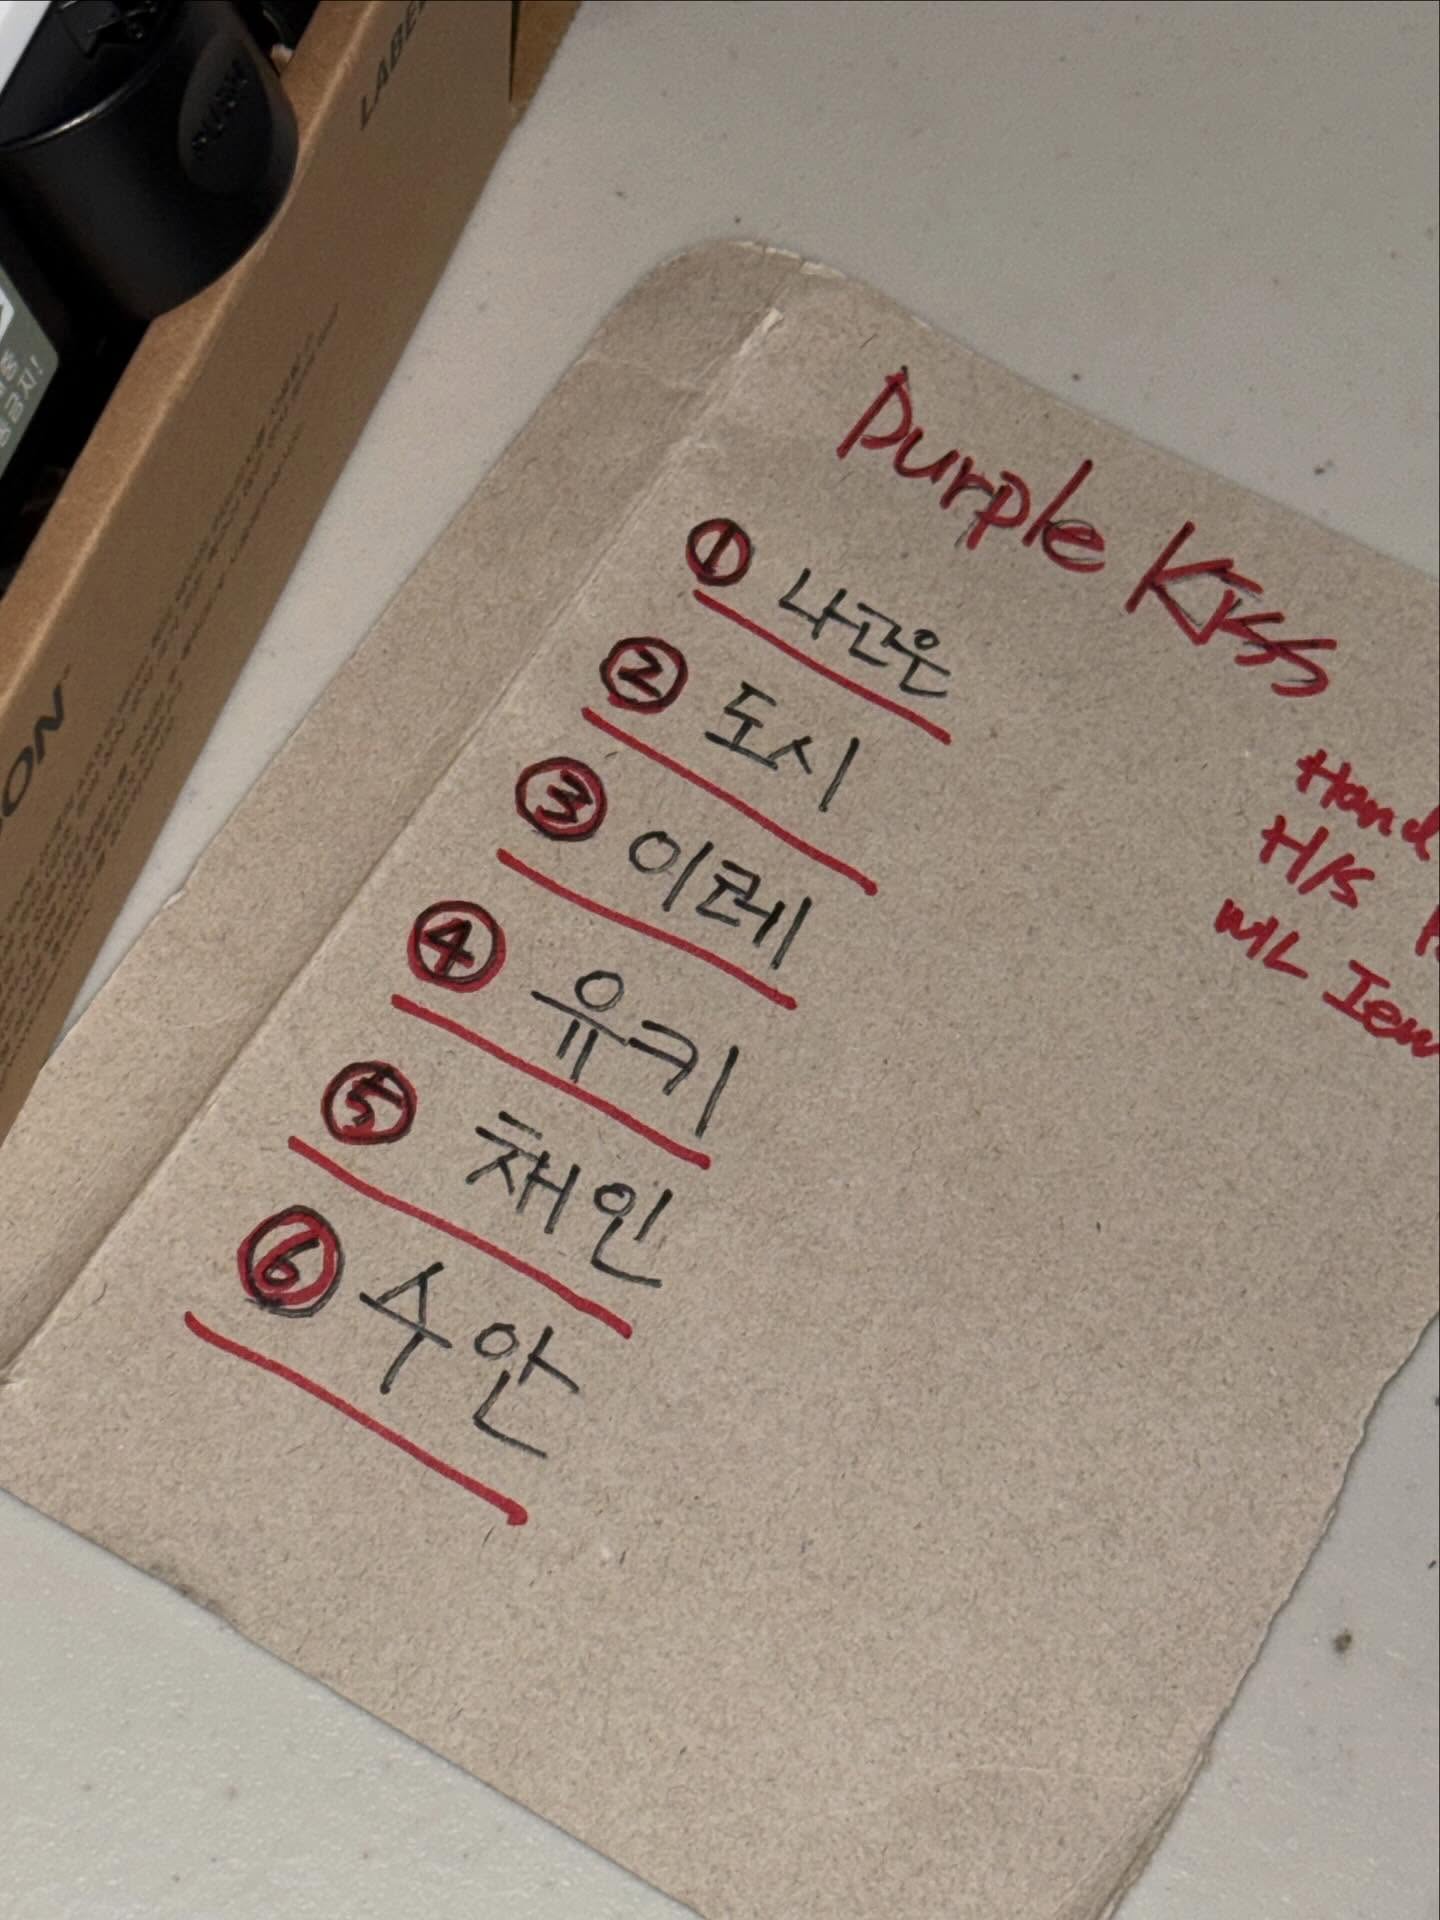 LABE
PUSH
금지!
ON
Purple Kiss
① 나고은
② 도시
③ 이레
④ 유키
⑤ 채인
⑥ 수안
Hand
H/S